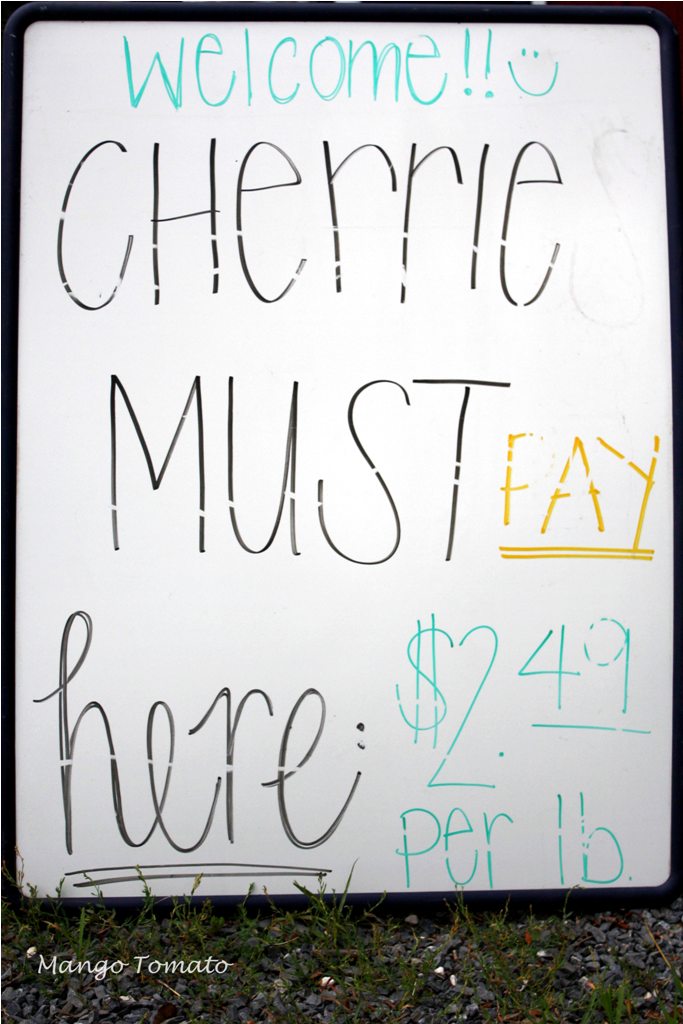 Welcome!!
CHerrIe
MUST PAY
here: $2.49
per lb.
Mango Tomato